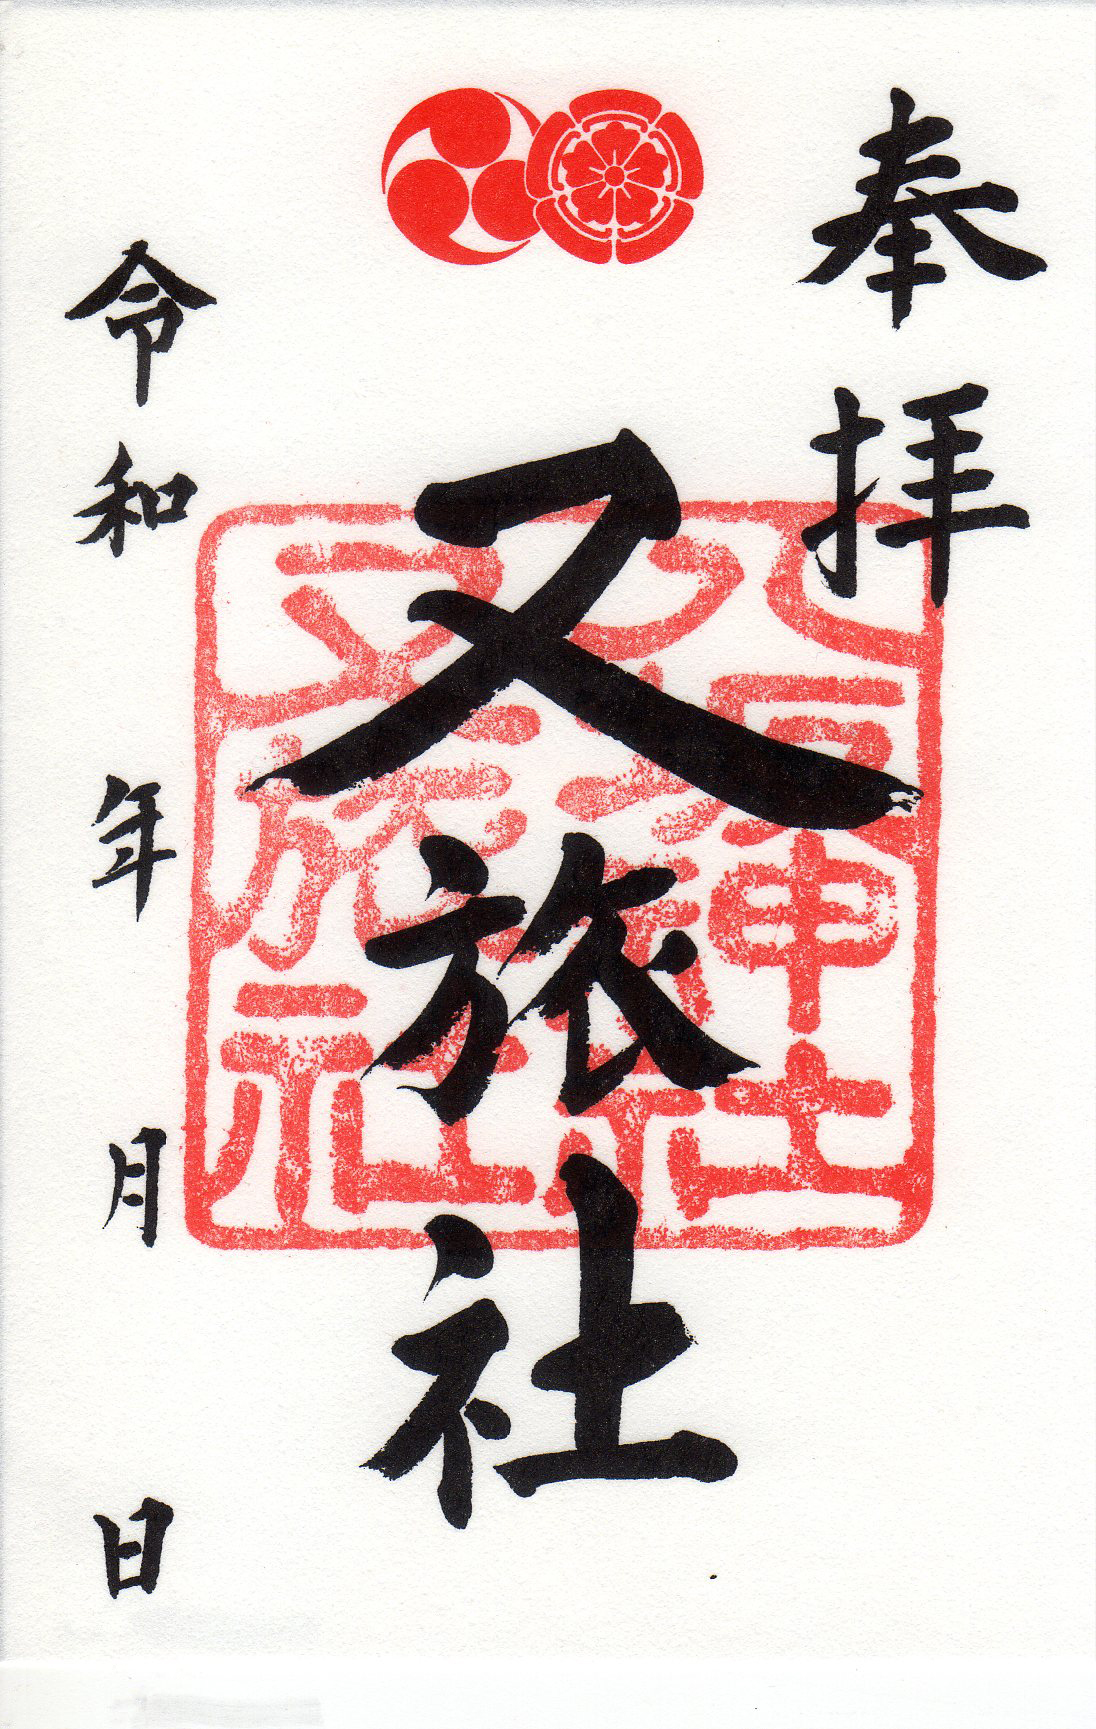 奉拝
又旅社
令和 年 月 日
又旅社